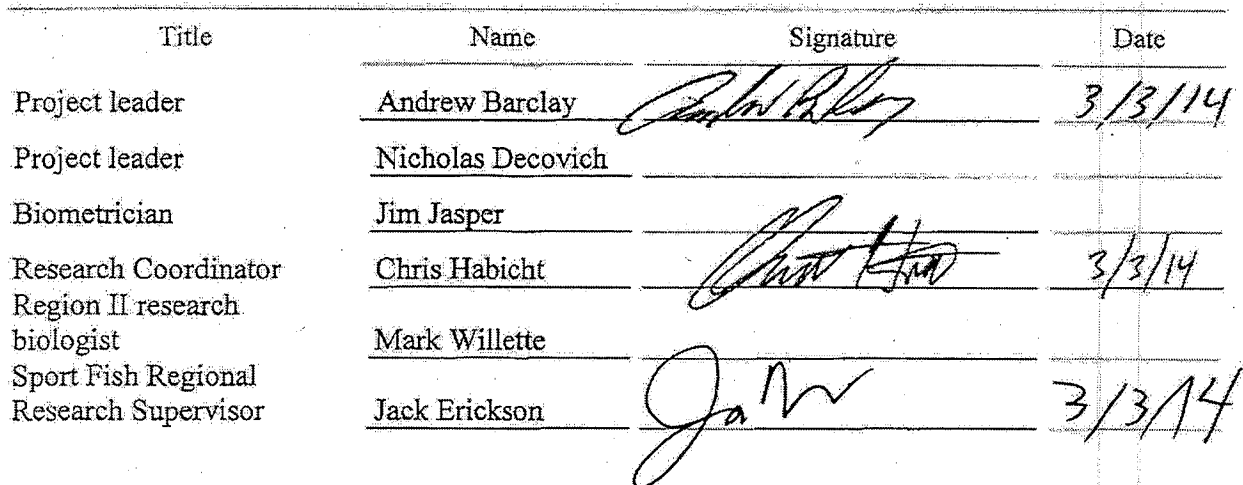 Title Name Signature Date
Project leader Andrew Barclay 3/3/14
Project leader Nicholas Decovich
Biometrician Jim Jasper
Research Coordinator Chris Habicht 3/3/14
Region II research
biologist Mark Willette
Sport Fish Regional
Research Supervisor Jack Erickson 3/3/14